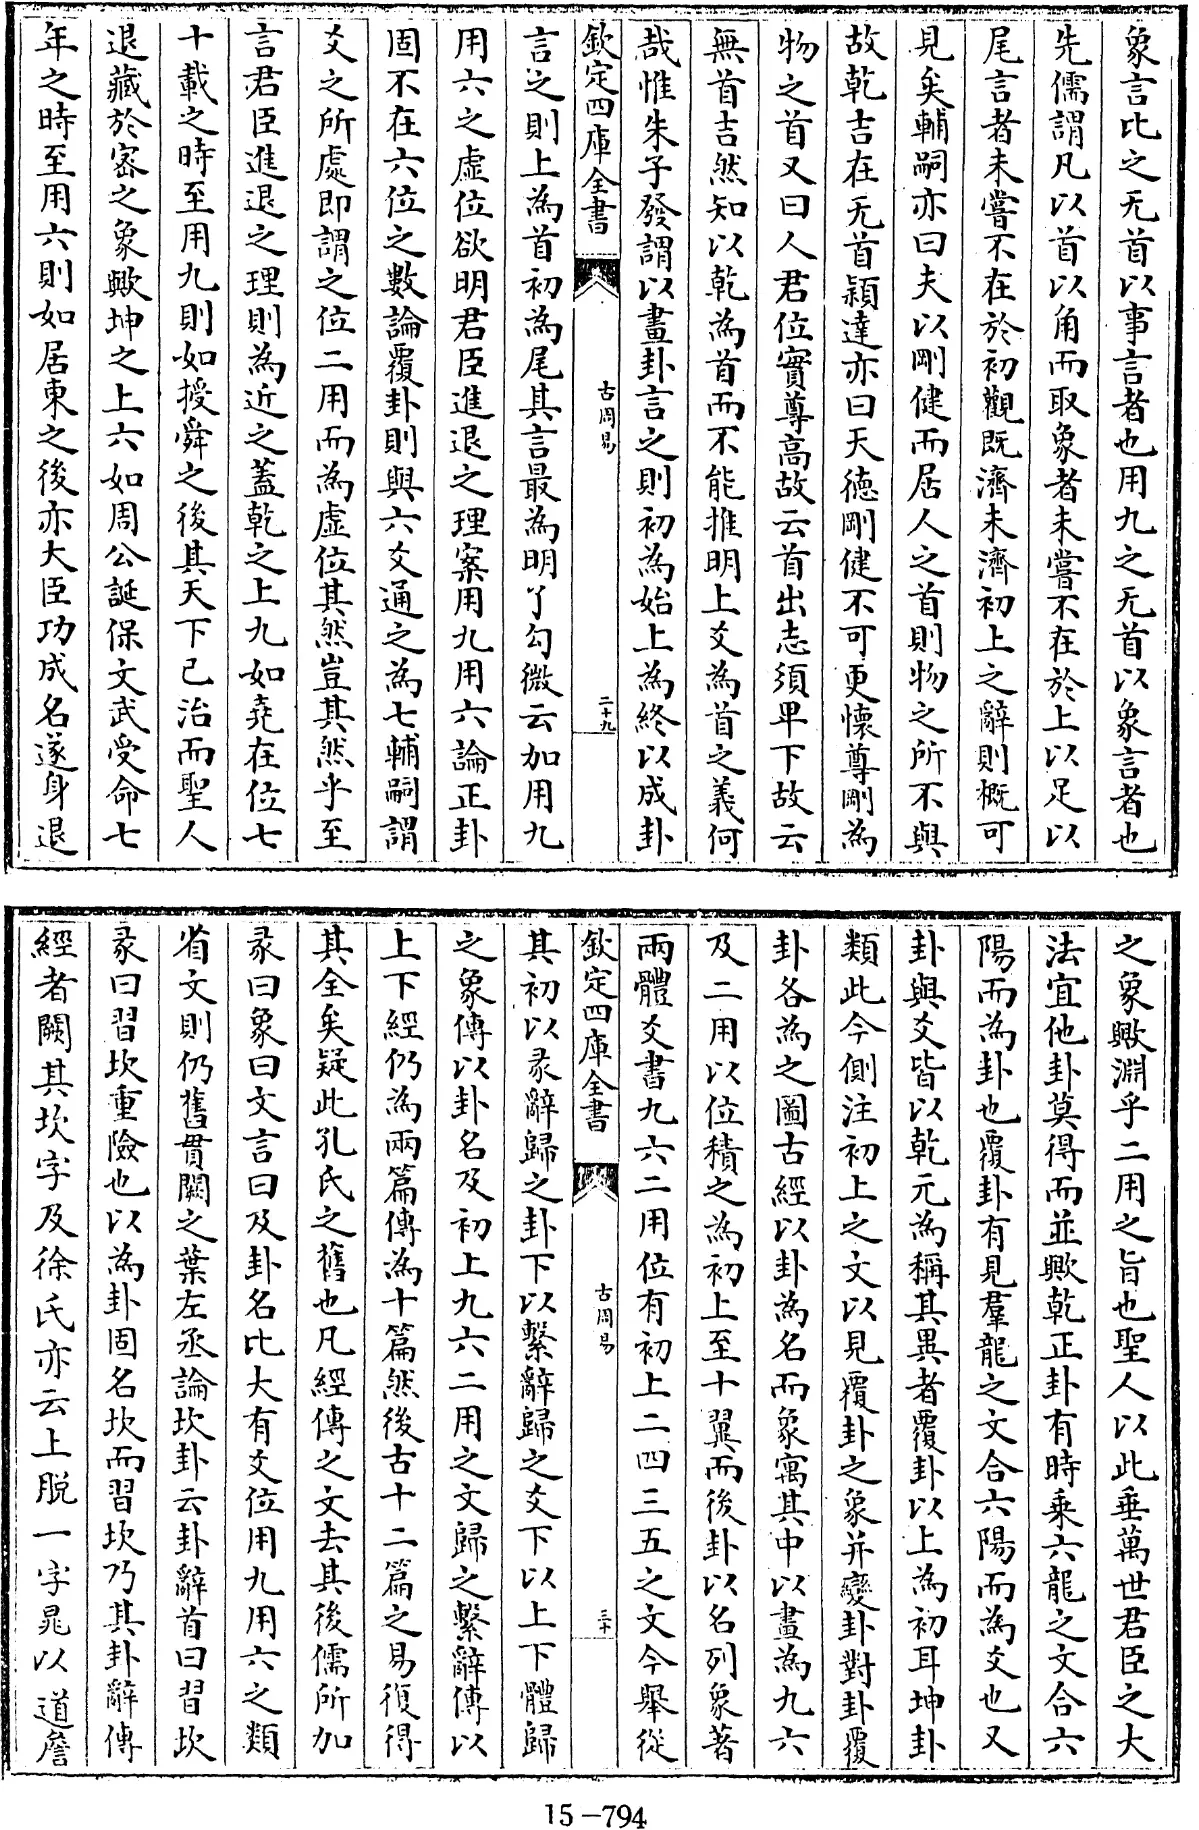 象言比之无首以事言者也用九之无首以象言者也
先儒謂凡以首以角而取象者未嘗不在於上以足以
尾言者未嘗不在於初觀既濟未濟初上之辭則概可
見矣輔嗣亦曰夫以剛健而居人之首則物之所不與
故乾吉在无首穎達亦曰天德剛健不可更懷尊剛為
物之首又曰人君位實尊高故云首出志須卑下故云
無首吉然知以乾為首而不能推明上爻為首之義何
哉惟朱子發謂以畫卦言之則初為始上為終以成卦
欽定四庫全書
古周易
二十九
言之則上為首初為尾其言最為明了勾微云加用九
用六之虛位欲明君臣進退之理案用九用六論正卦
固不在六位之數論覆卦則與六爻通之為七輔嗣謂
爻之所處即謂之位二用而為虛位其然豈其然乎至
言君臣進退之理則為近之蓋乾之上九如堯在位七
十載之時至用九則如授舜之後其天下已治而聖人
退藏於密之象歟坤之上六如周公誕保文武受命七
年之時至用六則如居東之後亦大臣功成名遂身退
之象歟淵乎二用之旨也聖人以此垂萬世君臣之大
法宜他卦莫得而並歟乾正卦有時乘六龍之文合六
陽而為卦也覆卦有見羣龍之文合六陽而為爻也又
卦與爻皆以乾元為稱其異者覆卦以上為初耳坤卦
類此今側注初上之文以見覆卦之象并變卦對卦覆
卦各為之圖古經以卦為名而象寓其中以畫為九六
及二用以位積之為初上至十翼而後卦以名列象著
兩體爻書九六二用位有初上二四三五之文今舉從
欽定四庫全書
古周易
三十
其初以彖辭歸之卦下以繫辭歸之爻下以上下體歸
之象傳以卦名及初上九六二用之文歸之繫辭傳以
上下經仍為兩篇傳為十篇然後古十二篇之易復得
其全矣疑此孔氏之舊也凡經傳之文去其後儒所加
彖曰象曰文言曰及卦名比大有爻位用九用六之類
省文則仍舊貫闕之葉左丞論坎卦云卦辭首曰習坎
彖曰習坎重險也以為卦固名坎而習坎乃其卦辭傳
經者闕其坎字及徐氏亦云上脱一字晁以道詹
15-794